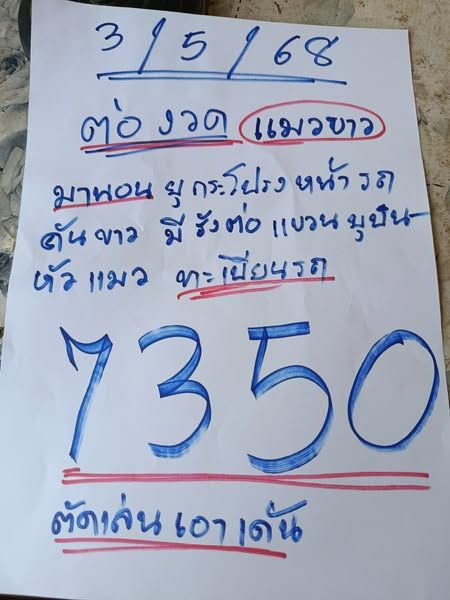 3/5/68
ต่อ งวด แมวขาว
มานอน ยุ กระโปรง หน้า รถ
คันขาว มี รังต่อ แขวน ยุบน
หัว แมว ทะเบียนรถ
7350
ตัดเล่น เอา เด้น